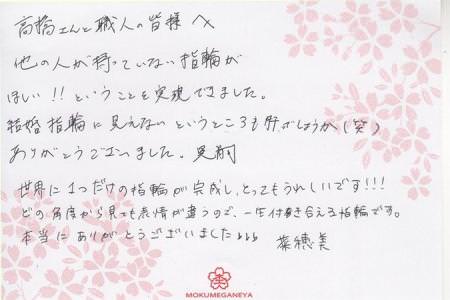 高橋さんと職人の皆様へ
他の人が持っていない指輪が
ほしい!!ということを実現できました。
結婚指輪に見えないというところも肝でしょうか(笑)
ありがとうございました。
世界に1つだけの指輪が完成し、とってもうれしいです!!!
どの角度から見ても表情が違うので、一生付き合える指輪です。
本当にありがとうございました 菜穂美
MOKUMEGANEYA